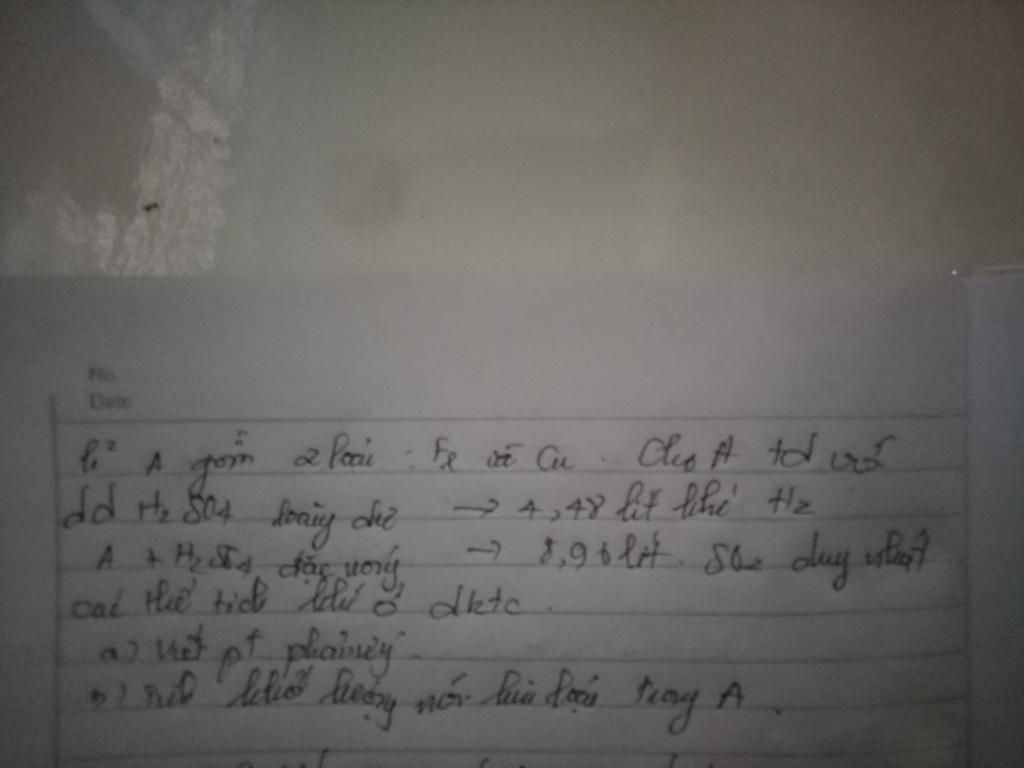 No.
Date
h² A gồm 2 loại : Fe và Cu. Cho A td với
dd H₂SO₄ loãng dư → 4,48 lít khí H₂
A + H₂SO₄ đặc nóng → 8,96 lít SO₂ duy nhất
các thể tích khí ở đktc.
a) Viết pt phản ứng.
b) khối lượng mỗi kim loại trong A.